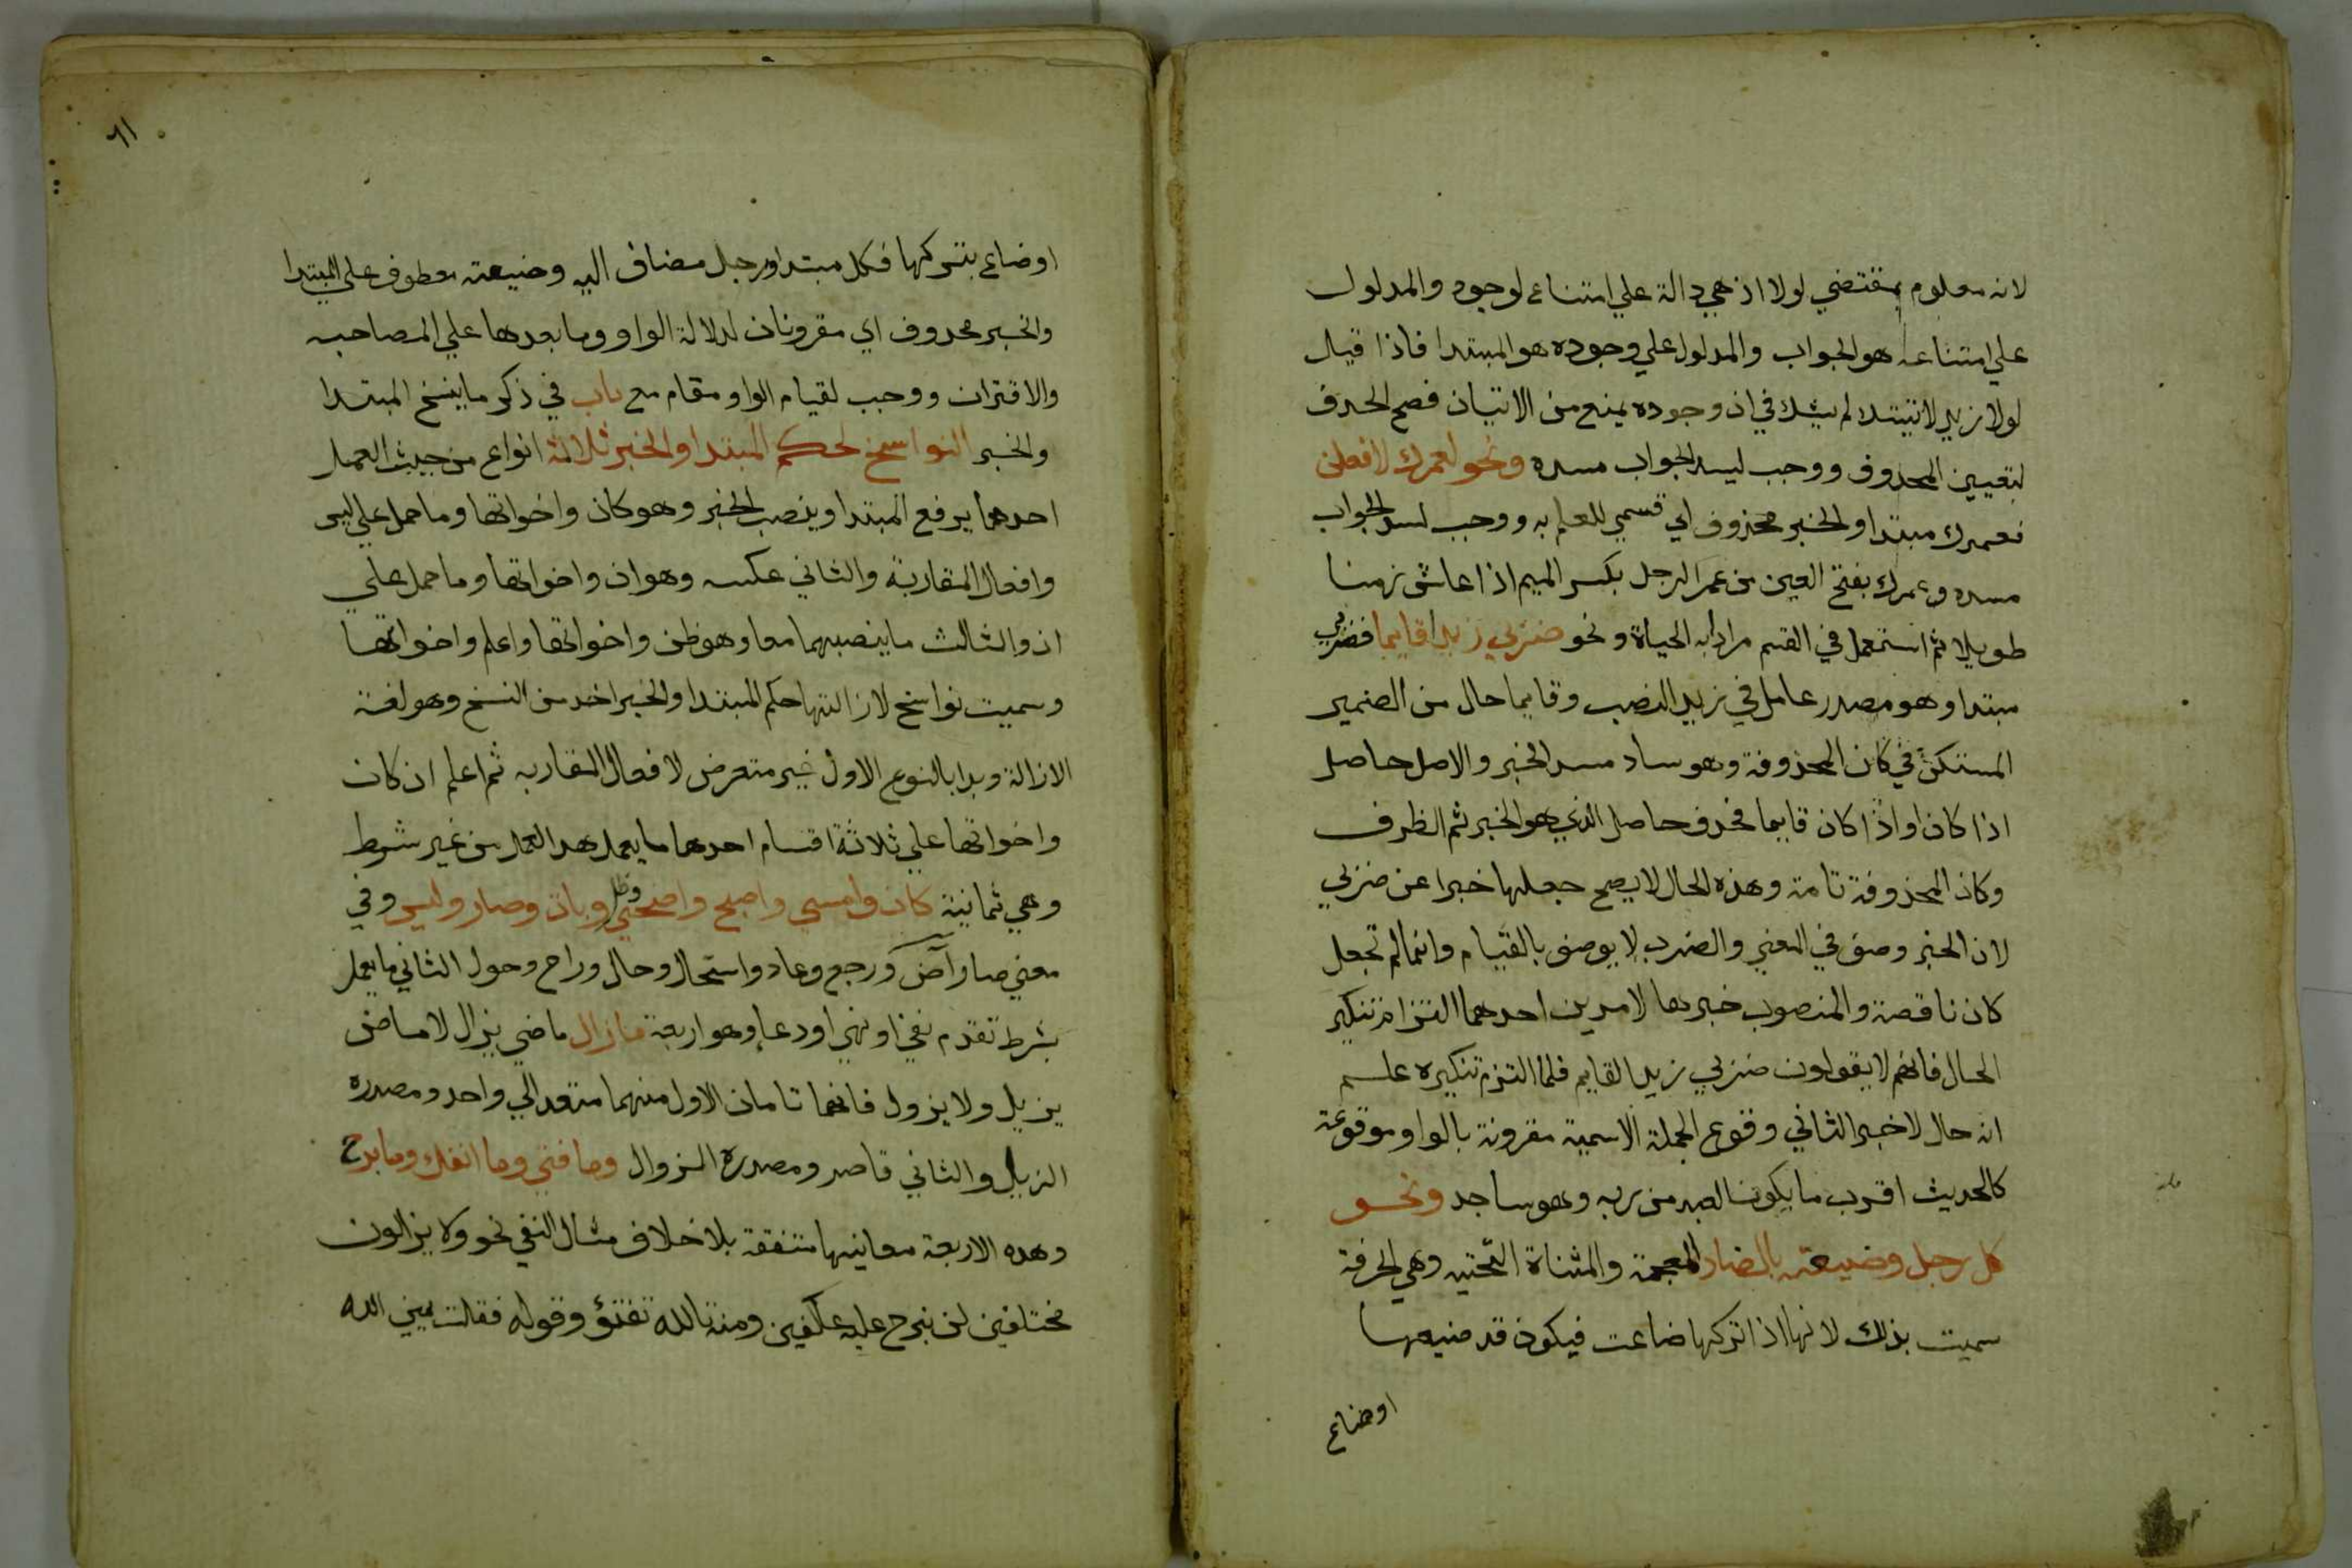 لانه معلوم بمقتضي لولا اذ هي دالة علي امتناع لوجود والمدلول
علي امتناعه هو الجواب والمدلول علي وجوده هو المبتدا فاذا قيل
لولا زيد لاتيتك لم يشك في ان وجوده يمنع من الاتيان فصح الحذف
لتعيين المحذوف ووجب ليسد الجواب مسده ونحو لعمرك لافعلن
فعمرك مبتدا والخبر محذوف اي قسمي للعلم به ووجب لسد الجواب
مسده وعمرك بفتح العين من عمر الرجل بكسر الميم اذا عاش زمنا
طويلا ثم استعمل في القسم مرادا به الحياة ونحو ضربي زيدا قايما فضربي
مبتدا وهو مصدر عامل في زيد النصب وقايما حال من الضمير
المستكن في كان المحذوفة وهو ساد مسد الخبر والاصل حاصل
اذا كان او اذ اكان قايما فحذف حاصل الذي هو الخبر ثم الظرف
وكان المحذوفة تامة وهذه الحال لا يصح جعلها خبرا عن ضربي
لان الخبر وصف في المعني والضرب لا يوصف بالقيام وانما لم تجعل
كان ناقصة والمنصوب خبرها لامرين احدهما التزام تنكير
الحال فانهم لا يقولون ضربي زيدا القايم فلما التزم تنكيره علم
انه حال لا خبر الثاني وقوع الجملة الاسمية مقرونة بالواو موقوعة
كالحديث اقرب ما يكون العبد من ربه وهو ساجد ونحو
كل رجل وضيعته بالضاد المعجمة والمثناة التحتيه وهي الحرفة
سميت بذلك لانها اذا تركها ضاعت فيكون قد ضيعها
اوضاع
٦١
اوضاع بتركها فكل مبتدا ورجل مضاف اليه وضيعته معطوف علي المبتدا
والخبر محذوف اي مقرونان لدلالة الواو وما بعدها علي المصاحبه
والاقتران ووجب لقيام الواو مقام مع باب في ذكر ما ينسخ المبتدا
والخبر النواسخ لحكم المبتدا والخبر ثلاثة انواع من حيث العمل
احدها يرفع المبتدا وينصب الخبر وهو كان واخواتها وما حمل علي ليس
وافعال المقاربة والثاني عكسه وهو ان واخواتها وما حمل علي
ان والثالث ما ينصبهما معا وهو ظن واخواتها واعلم واخواتها
وسميت نواسخ لازالتها حكم المبتدا والخبر اخذ من النسخ وهو لغة
الازالة وبدا بالنوع الاول غير متعرض لافعال المقاربه ثم اعلم ان كان
واخواتها علي ثلاثة اقسام احدها ما يعمل هذا العمل من غير شرط
وهي ثمانية كان وامسي واصبح واضحي وظل وبات وصار وليس وفي
معني صار آض ورجع وعاد واستحال وحال وراح وحول الثاني ما يعمل
بشرط تقدم نفي او نهي او دعا وهو اربعة ما زال ماضي يزال لا ماض
يزيل ولا يزول فانهما تامان الاول منهما متعد الي واحد ومصدره
الزيل والثاني قاصر ومصدره الزوال وما فتي وما انفك وما برح
وهذه الاربعة معانيها متفقة بلا خلاف مثال النفي نحو ولا يزالون
مختلفين لن نبرح عليه عاكفين ومنه تالله تفتؤ وقوله فقلت يمين الله